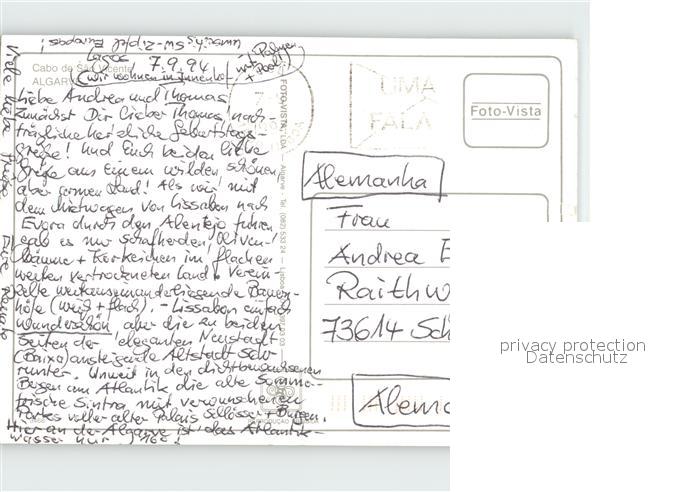 unseres SW-Zipfel Europas!
Cabo de São Vicente
ALGARVE
Lagos 7.9.94
(wir wohnen im Innenhof
mit Palmen
+ Pool)
Liebe Andrea und Thomas,
Zunächst Dir lieber Thomas, nach-
trägliche herzliche Geburtstags-
grüße! Und Euch beiden liebe
Grüße aus einem wilden, schönen,
aber armen Land! Als wir mit
dem Mietwagen von Lissabon nach
Evora durch den Alentejo fuhren
gab es nur Schafherden, Oliven-
bäume + Korkeichen im flachen
weiten vertrockneten Land. Verein-
zelte weitauseinanderliegende Bauern-
höfe (weiß + flach). - Lissabon einfach
wunderschön, aber die zu beiden
Seiten der eleganten Neustadt
(Baixa) ansteigende Altstadt sehr
runter. Unweit in den dichtbewachsenen
Bergen am Atlantik die alte Somme-
frische Sintra mit verwunschenen
Parks voller alter Palais Schlösser + Burgen.
Hier an der Algarve ist das Atlantik-
wasser nur
Viele liebe Grüße Eure
FOTO-VISTA, LDA. - Algarve - Tel. (082) 533 24 - Lisboa
UMA
FALA
Foto-Vista
Alemanha
Frau
Andrea E
Raithw
73614 Sch
Alema
privacy protection
Datenschutz